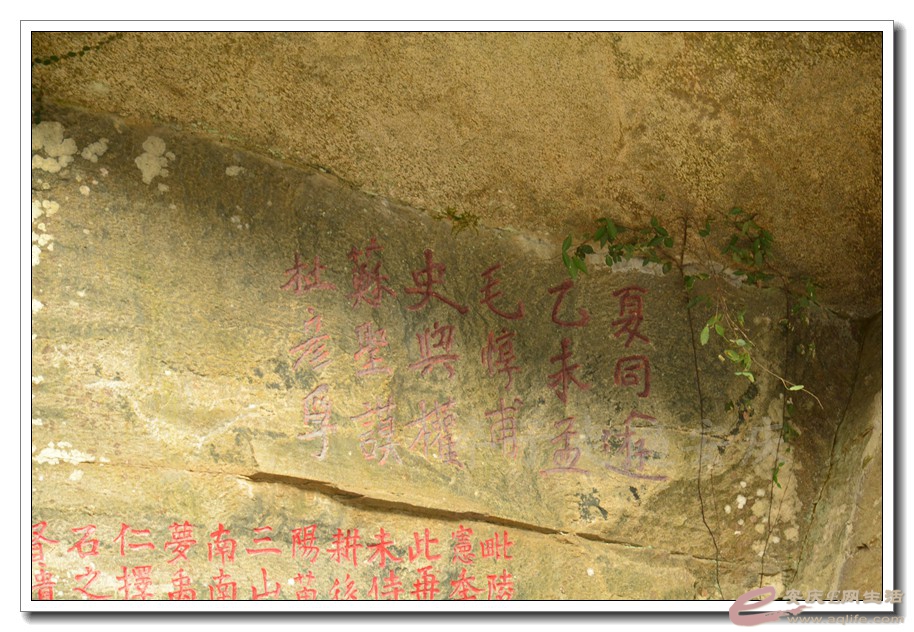 杜彥孚
蘇聖謨
史與權
毛惇甫
乙未孟
夏同
毗陵
憲
此再
未侍
耕後
陽
三山
南南
夢
仁擇
石之
安庆E网生活
www.aqlife.com